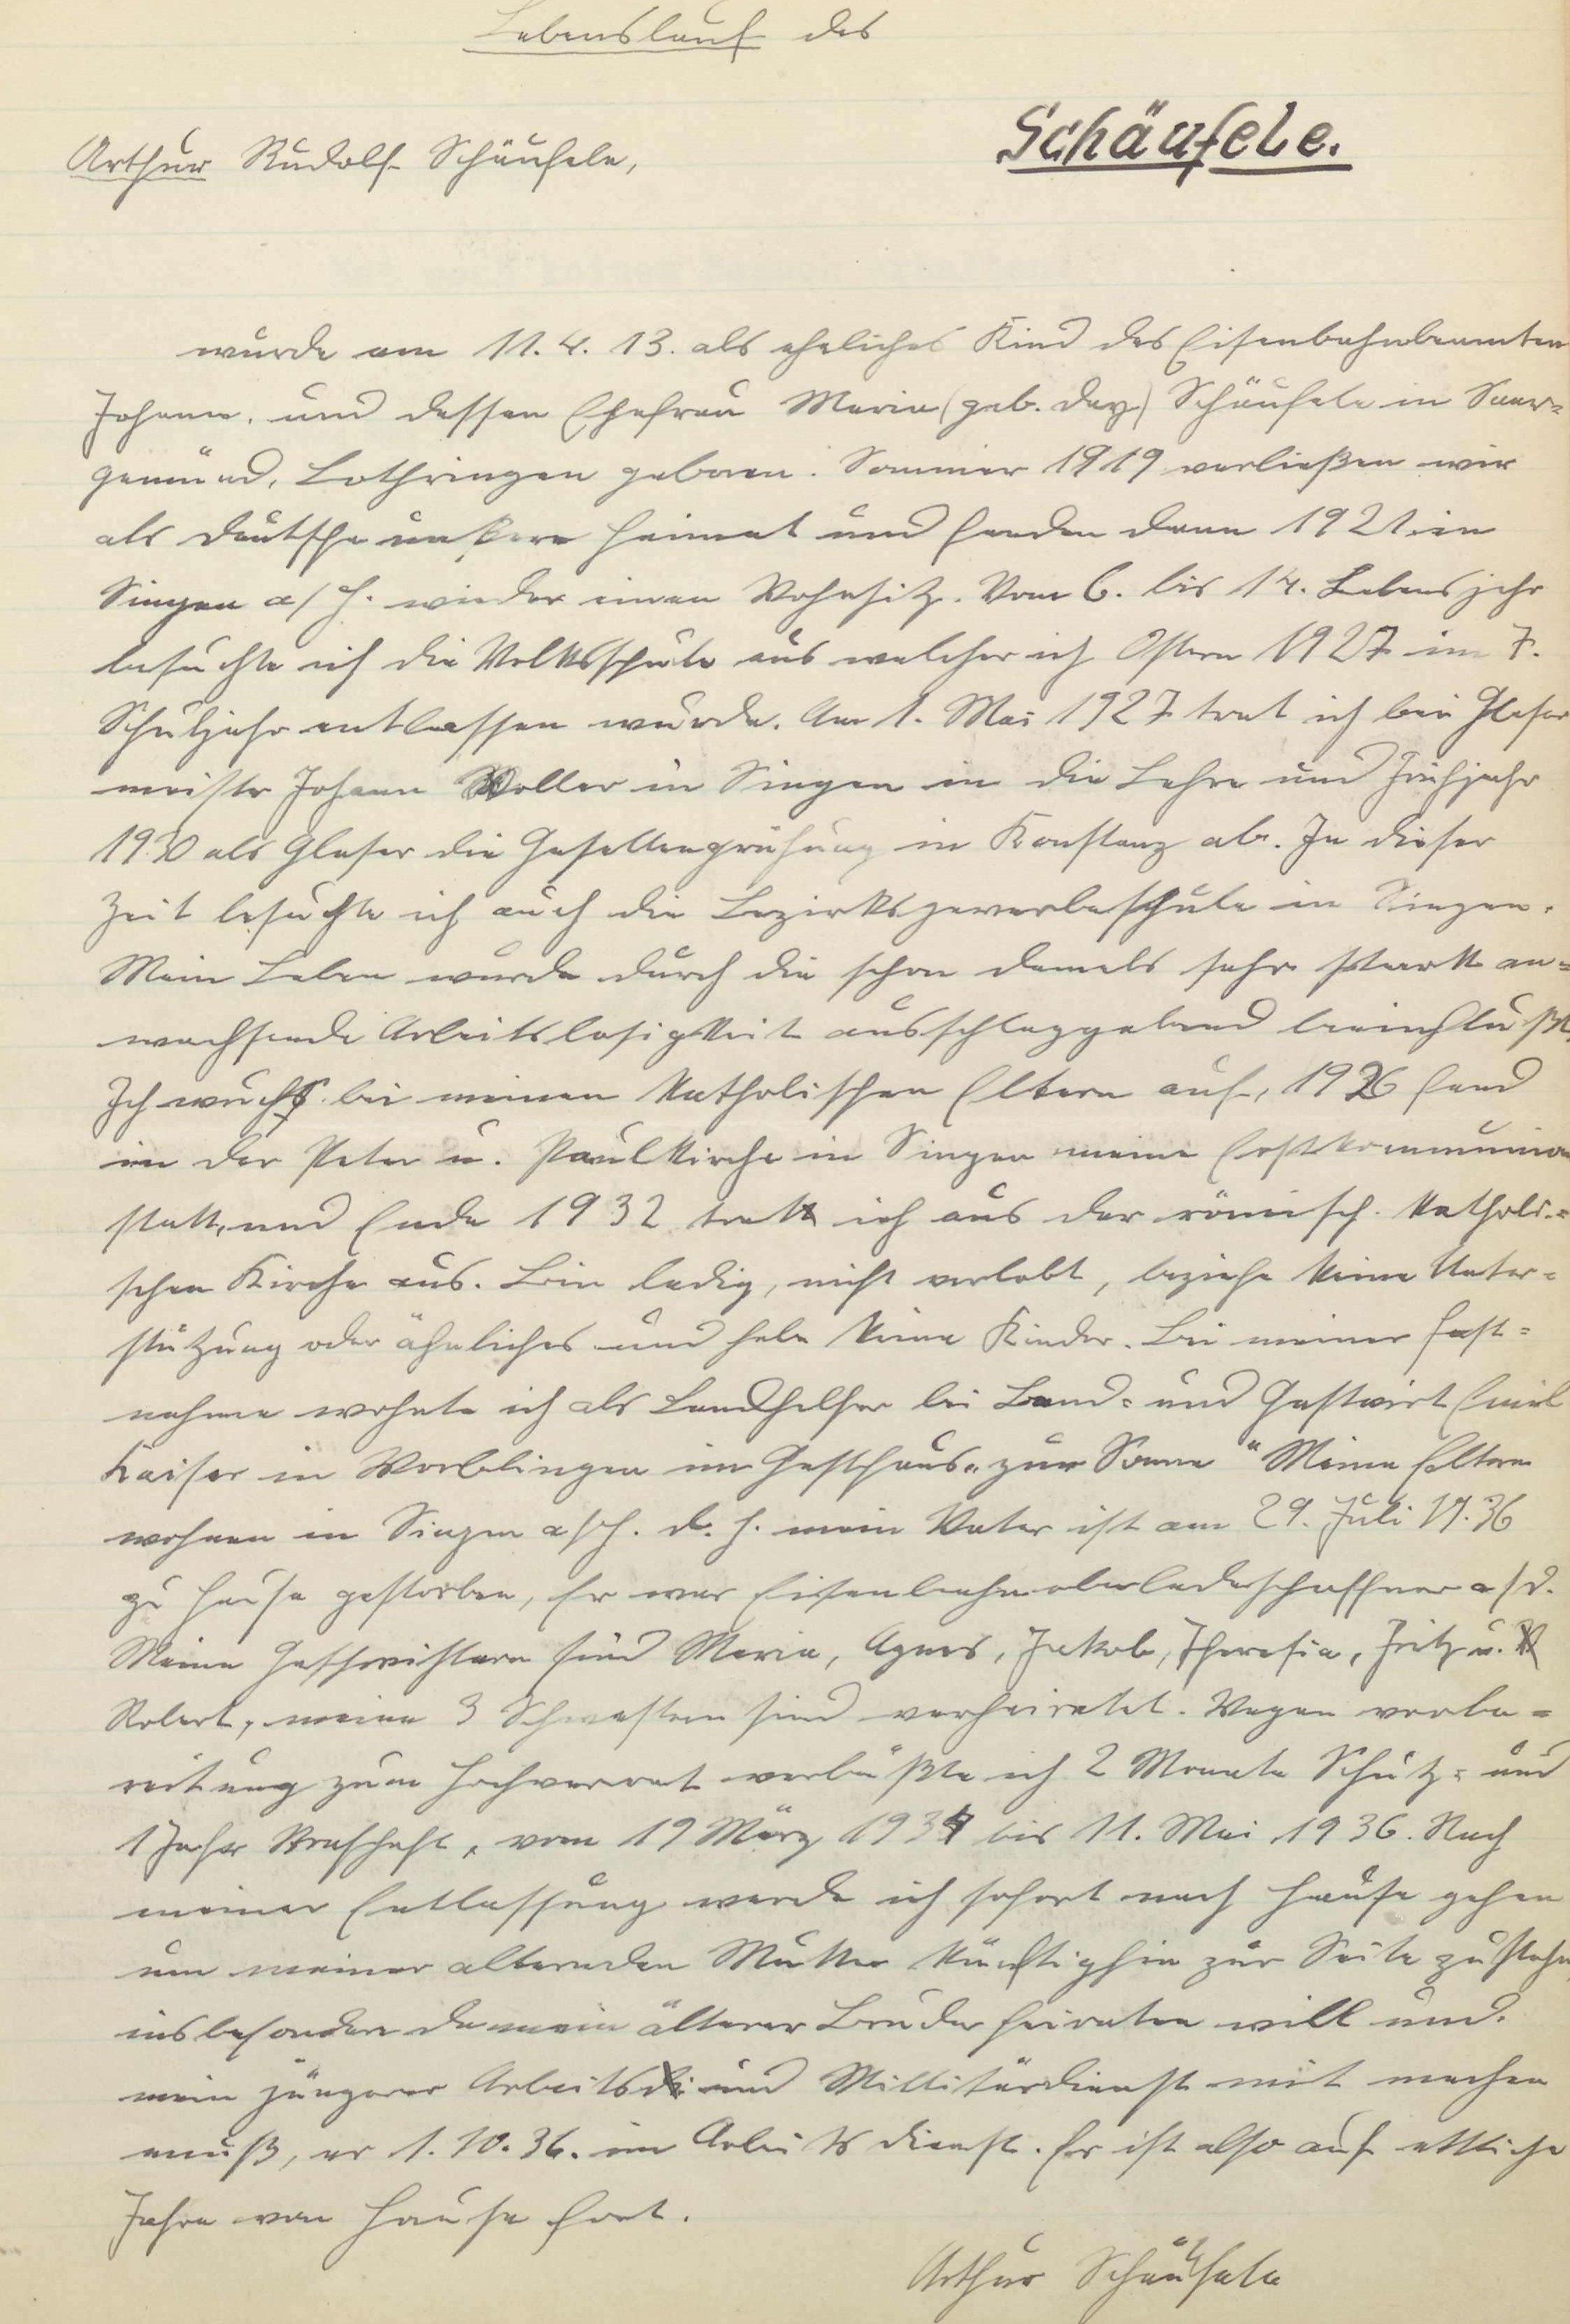 Lebenslauf des
Schäufele.
Arthur Rudolf Schäufele,
wurde am 11.4.13. als eheliches Kind des Eisenbahnbeamten
Johann, und dessen Ehefrau Maria (geb. Dey) Schäufele in Saar=
gemünd, Lothringen geboren. Sommer 1919 verließen wir
als Deutsche unsere Heimat und fanden dann 1921 in
Singen a/H. wieder einen Wohnsitz. Vom 6. bis 14. Lebensjahr
besuchte ich die Volksschule aus welcher ich Ostern 1927 im 7.
Schuljahr entlassen wurde. Am 1. Mai 1927 trat ich bei Glaser
meister Johann Woller in Singen in die Lehre und Frühjahr
1930 als Glaser die Gesellenprüfung in Konstanz ab. In dieser
Zeit besuchte ich auch die Bezirksgewerbeschule in Singen.
Mein Leben wurde durch die schon damals sehr stark an=
wachsende Arbeitslosigkeit ausschlaggebend beeinflußt.
Ich wuchs bei meinen katholischen Eltern auf, 1926 fand
in der Peter u. Paulkirche in Singen meine Erstkommunion
statt, und Ende 1932 trat ich aus der römisch. katholi=
schen Kirche aus. Bin ledig, nicht verlobt, beziehe keine Unter=
stützung oder ähnliches und habe keine Kinder. Bei meiner Fest=
nahme wohnte ich als Landhelfer bei Land= und Gastwirt Emil
Kaiser in Worblingen im Gasthaus „zur Sonne" Meine Eltern
wohnen in Singen a/H. d.h. mein Vater ist am 29. Juli 19.36
zu Hause gestorben, Er war Eisenbahnoberladeschaffner a/d.
Meine Geschwistern sind Maria, Agnes, Jakob, Theresia, Fritz u.
Robert, meine 3 Schwestern sind verheiratet. Wegen vorbe=
reitung zum Hochverrat verbüßte ich 2 Monate Schutz= und
1 Jahr Strafhaft, vom 19 März 1934 bis 11. Mai 1936. Nach
meiner Entlassung werde ich sofort nach Hause gehen
um meiner alternden Mutter künftighin zur Seite zu stehen
insbesondere da mein älterer Bruder heiraten will und.
mein jüngerer Arbeits und Millitärdienst mit machen
muß, er 1.10.36. im Arbeitsdienst. Er ist also auf ettliche
Jahre von Hause fort.
Arthur Schäufele